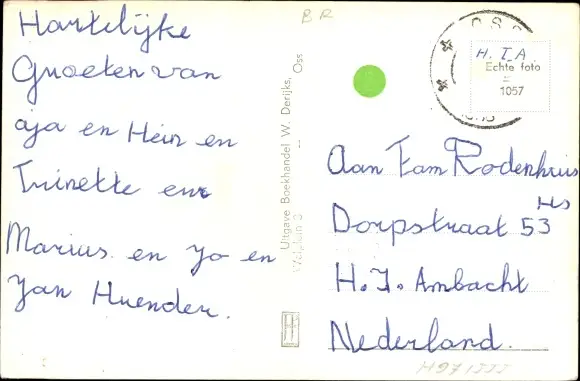 BR
Hartelijke
Groeten van
aja en Hein en
Trinette en
Marius en yo en
Jan Huender.
Uitgave Boekhandel W. Derijks, Oss
OSS
H.I.A.
Echte foto
=
1057
Aan Fam Rodenhuis
Hs
Dorpstraat 53
H.I. Ambacht
Nederland.